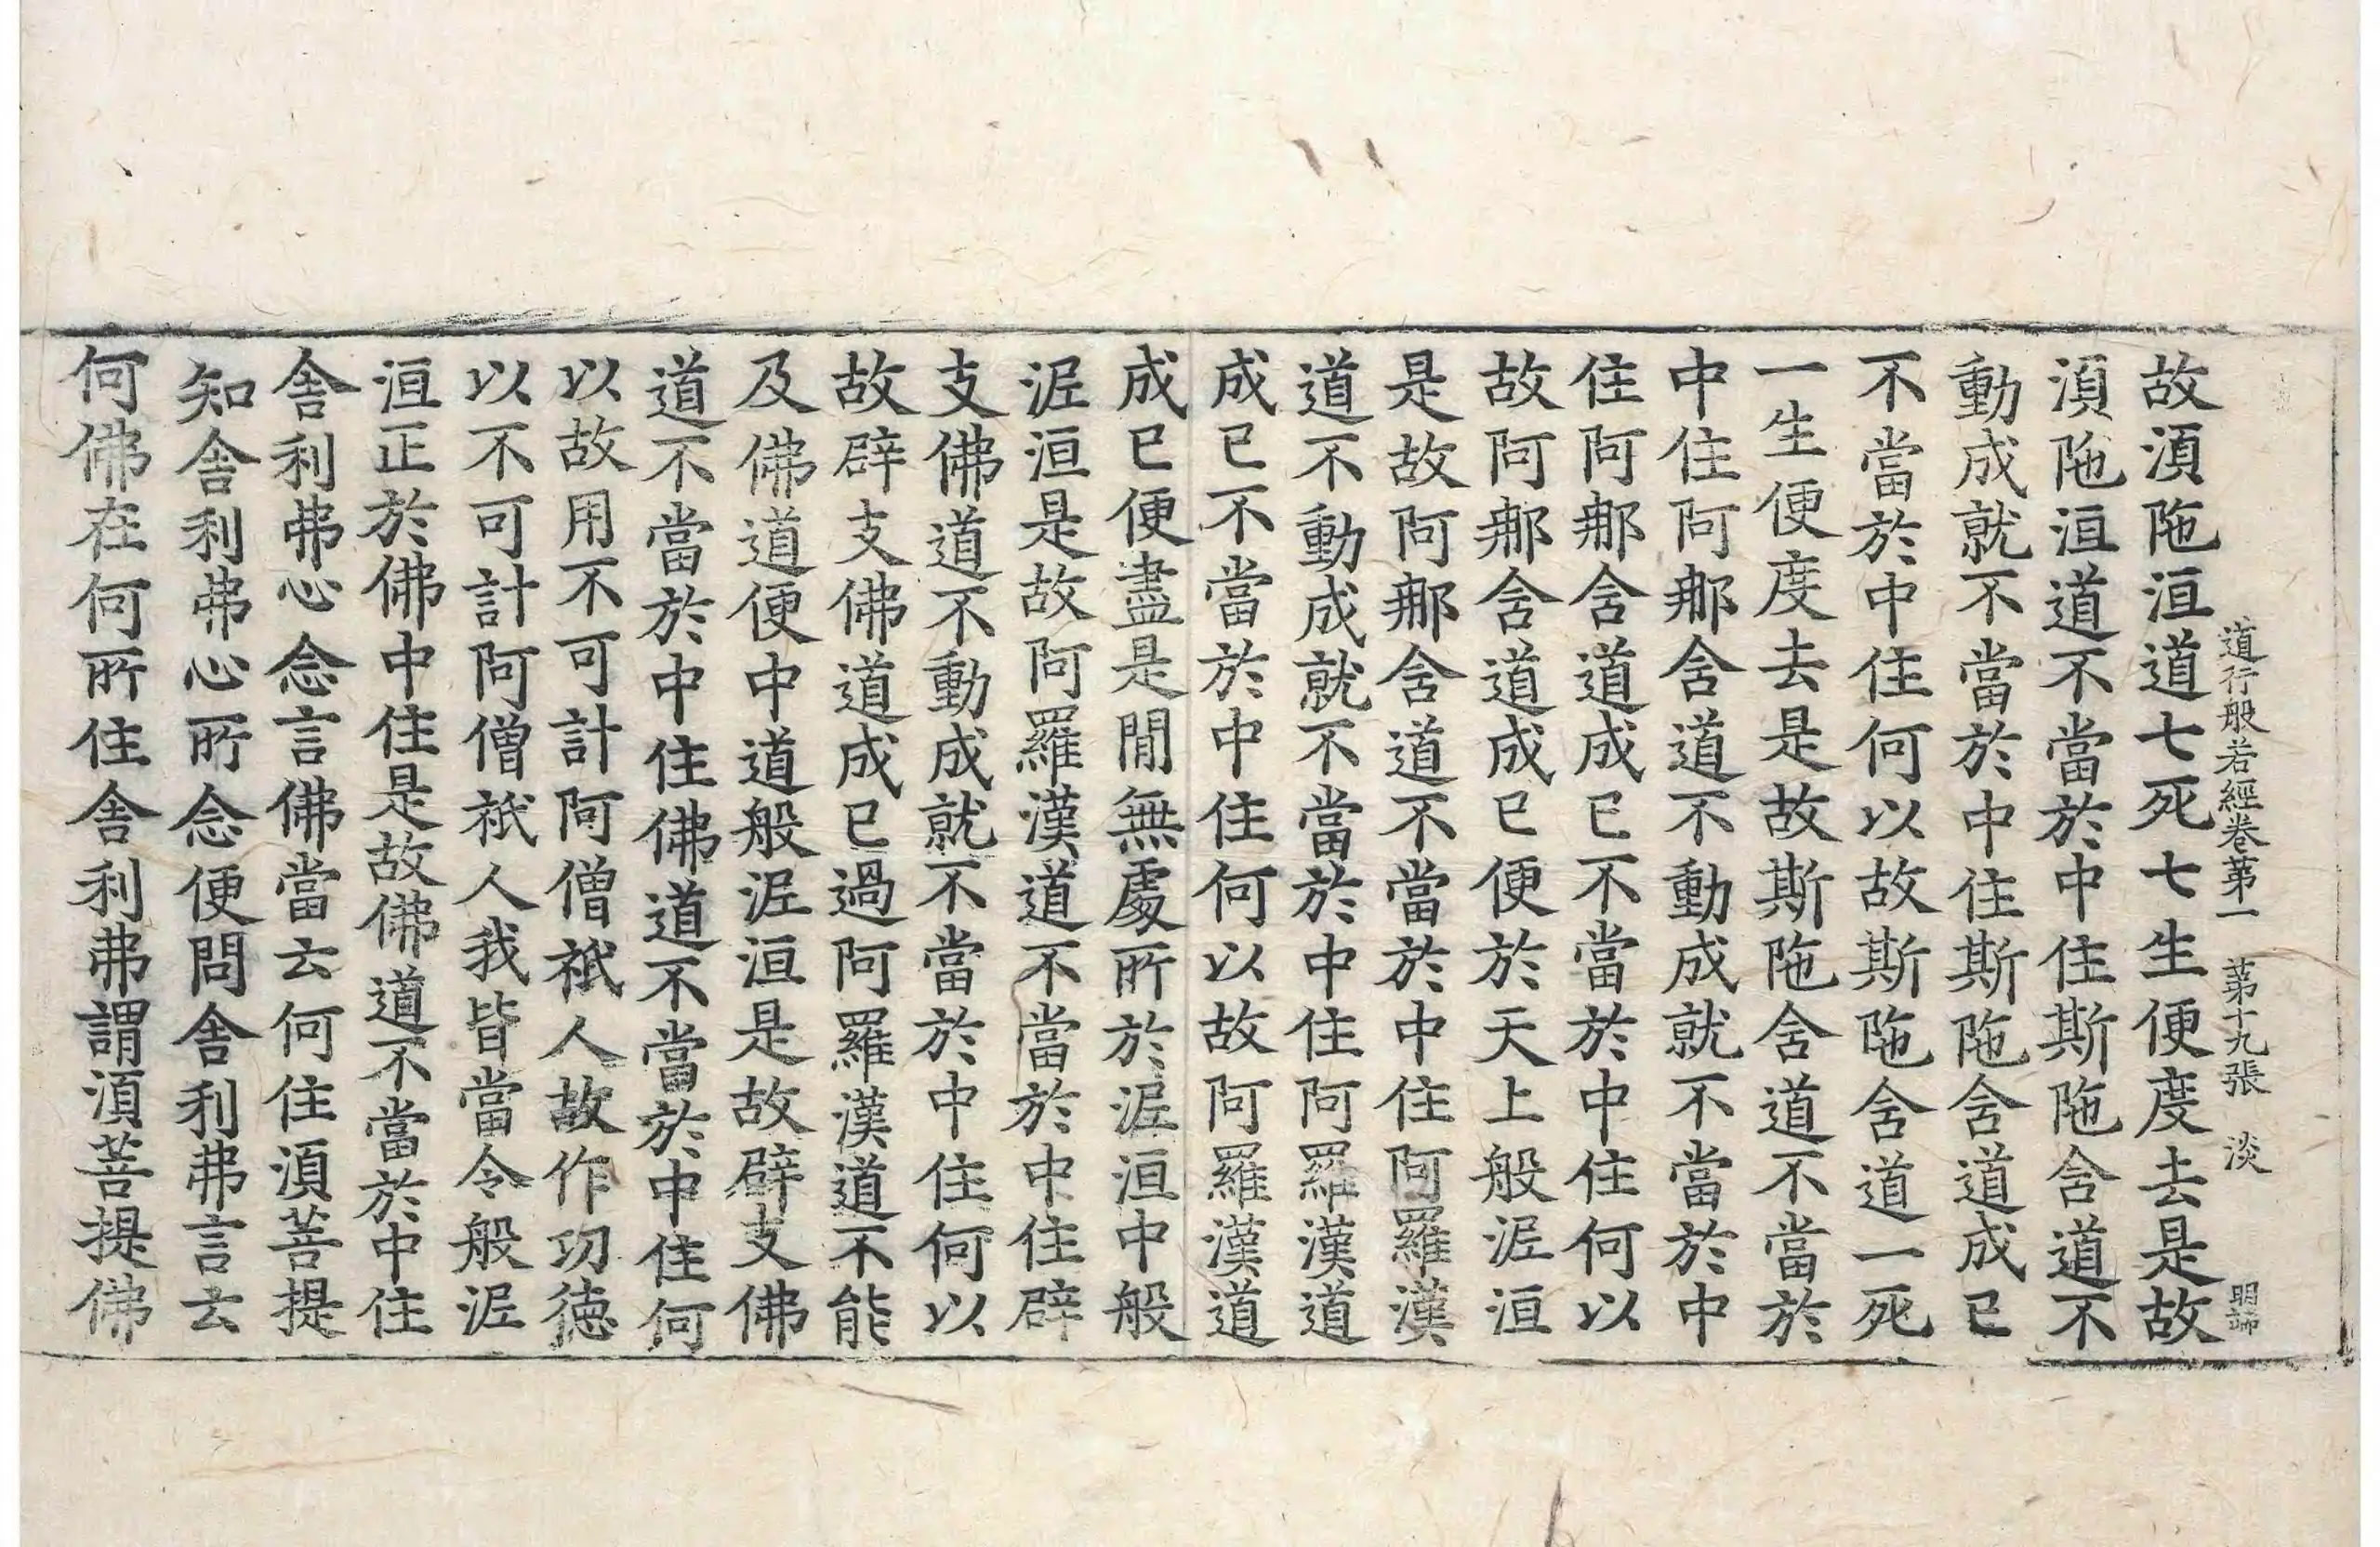 道行般若經卷第一　第十九張　淡　明端
故湏陁洹道七死七生便度去是故
湏陁洹道不當於中住斯陁含道不
動成就不當於中住斯陁含道成已
不當於中住何以故斯陁含道一死
一生便度去是故斯陁含道不當於
中住阿那含道不動成就不當於中
住阿那含道成已不當於中住何以
故阿那含道成已便於天上般泥洹
是故阿那含道不當於中住阿羅漢
道不動成就不當於中住阿羅漢道
成已不當於中住何以故阿羅漢道
成已便盡是閒無處所於泥洹中般
泥洹是故阿羅漢道不當於中住辟
支佛道不動成就不當於中住何以
故辟支佛道成已過阿羅漢道不能
及佛道便中道般泥洹是故辟支佛
道不當於中住佛道不當於中住何
以故用不可計阿僧祇人故作功德
以不可計阿僧祇人我皆當令般泥
洹正於佛中住是故佛道不當於中住
舍利弗心念言佛當云何住湏菩提
知舍利弗心所念便問舍利弗言云
何佛在何所住舍利弗謂湏菩提佛